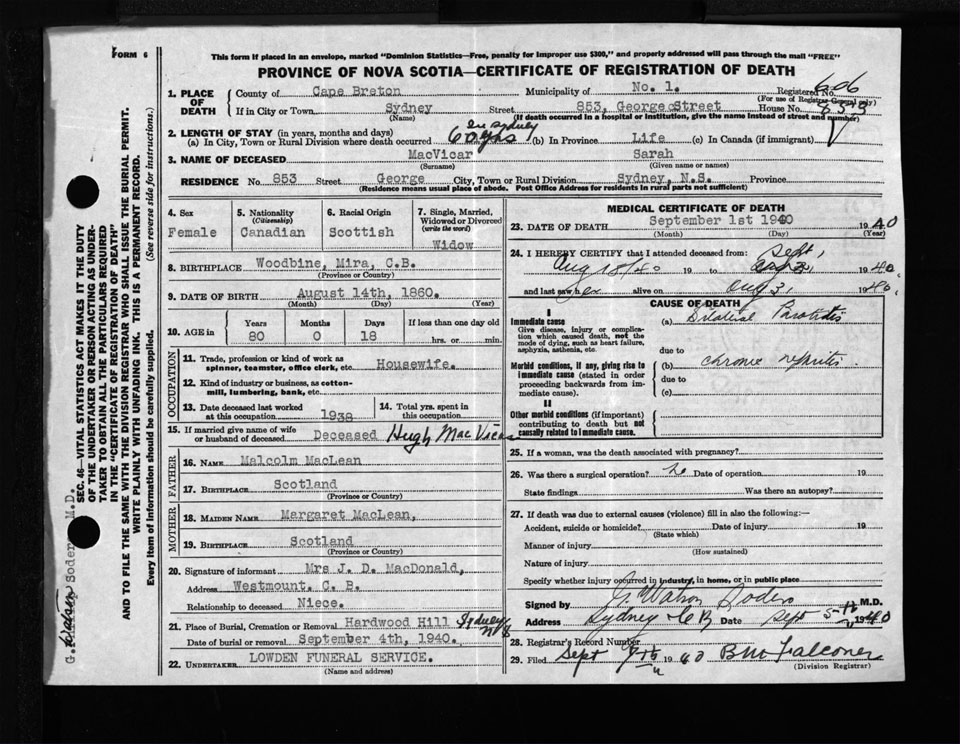 FORM 6
This form if placed in an envelope, marked "Dominion Statistics—Free, penalty for improper use $300," and properly addressed will pass through the mail "FREE"
PROVINCE OF NOVA SCOTIA—CERTIFICATE OF REGISTRATION OF DEATH
1. PLACE OF DEATH
County of Cape Breton Municipality of No. 1. Registered No. 606
(For use of Registrar General only)
If in City or Town Sydney Street 853, George Street House No. 853
(Name) (If death occurred in a hospital or institution, give the name instead of street and number)
2. LENGTH OF STAY (in years, months and days) In Sydney
(a) In City, Town or Rural Division where death occurred 60 yrs (b) In Province Life (c) In Canada (if immigrant)
3. NAME OF DECEASED MacVicar Sarah
(Surname) (Given name or names)
RESIDENCE No. 853 Street George City, Town or Rural Division Sydney, N.S. Province
(Residence means usual place of abode. Post Office Address for residents in rural parts not sufficient)
4. Sex Female
5. Nationality (Citizenship) Canadian
6. Racial Origin Scottish
7. Single, Married, Widowed or Divorced (write the word) Widow
8. BIRTHPLACE Woodbine, Mira, C.B.
(Province or Country)
9. DATE OF BIRTH August 14th, 1860.
(Month) (Day) (Year)
10. AGE in Years Months Days If less than one day old
80 0 18 hrs. or min.
OCCUPATION
11. Trade, profession or kind of work as spinner, teamster, office clerk, etc. Housewife.
12. Kind of industry or business, as cotton-mill, lumbering, bank, etc.
13. Date deceased last worked at this occupation 1938
14. Total yrs. spent in this occupation
15. If married give name of wife or husband of deceased Deceased Hugh MacVicar
FATHER
16. NAME Malcolm MacLean
17. BIRTHPLACE Scotland
(Province or Country)
MOTHER
18. MAIDEN NAME Margaret MacLean,
19. BIRTHPLACE Scotland
(Province or Country)
20. Signature of informant Mrs J. D. MacDonald,
Address Westmount, C. B.
Relationship to deceased Niece.
21. Place of Burial, Cremation or Removal Hardwood Hill Sydney NS
Date of burial or removal September 4th, 1940.
22. UNDERTAKER LOWDEN FUNERAL SERVICE.
(Name and address)
MEDICAL CERTIFICATE OF DEATH
23. DATE OF DEATH September 1st 1940 1940
(Month) (Day) (Year)
24. I HEREBY CERTIFY that I attended deceased from: Sept,
Aug 18/40 19 to 1940.
and last saw her alive on Aug 31, 1940.
CAUSE OF DEATH
I
Immediate cause (a) Bilateral Parotitis
Give disease, injury or complication which caused death, not the mode of dying, such as heart failure, asphyxia, asthenia, etc.
due to
Morbid conditions, if any, giving rise to immediate cause (stated in order proceeding backwards from immediate cause). (b) chronic nephritis
due to
(c)
II
Other morbid conditions (if important) contributing to death but not causally related to immediate cause.
25. If a woman, was the death associated with pregnancy?
26. Was there a surgical operation? no Date of operation 19
State findings Was there an autopsy?
27. If death was due to external causes (violence) fill in also the following:—
Accident, suicide or homicide? Date of injury 19
(State which)
Manner of injury
(How sustained)
Nature of injury
Specify whether injury occurred in industry, in home, or in public place
Signed by J. Watson Sodero M.D.
Address Sydney CB Date Sept 5-th 1940
28. Registrar's Record Number
29. Filed Sept 7th 1940 BM Falconer
(Division Registrar)
SEC. 46—VITAL STATISTICS ACT MAKES IT THE DUTY
OF THE UNDERTAKER OR PERSON ACTING AS UNDER-
TAKER TO OBTAIN ALL THE PARTICULARS REQUIRED
IN THE "CERTIFICATE OF REGISTRATION OF DEATH"
AND TO FILE THE SAME WITH THE DIVISION REGISTRAR WHO SHALL ISSUE THE BURIAL PERMIT.
WRITE PLAINLY WITH UNFADING INK. THIS IS A PERMANENT RECORD.
Every item of information should be carefully supplied. (See reverse side for instructions.)
G. Sodero M.D.